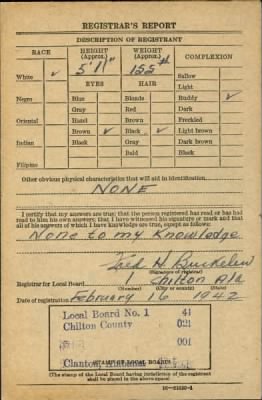 REGISTRAR'S REPORT
DESCRIPTION OF REGISTRANT
RACE HEIGHT (Approx.) WEIGHT (Approx.) COMPLEXION
5' 11" 155 # Sallow
White ✓ EYES HAIR Light
Ruddy ✓
Negro Blue Blonde Dark
Gray Red Freckled
Oriental Hazel Brown Light brown
Brown ✓ Black ✓ Dark brown
Indian Black Gray Black
Bald
Filipino
Other obvious physical characteristics that will aid in identification
NONE
I certify that my answers are true; that the person registered has read or has had
read to him his own answers; that I have witnessed his signature or mark and that
all of his answers of which I have knowledge are true, except as follows:
None to my Knowledge
Fred H
(Signature of registrar)
Registrar for Local Board Chilton Ala
(Number) (City or county) (State)
Date of registration February 16 1942
Local Board No. 1 41
Chilton County 021
001
Clanton, Alabama
STAMP OF LOCAL BOARD
(The stamp of the Local Board having jurisdiction of the registrant
shall be placed in the above space.)